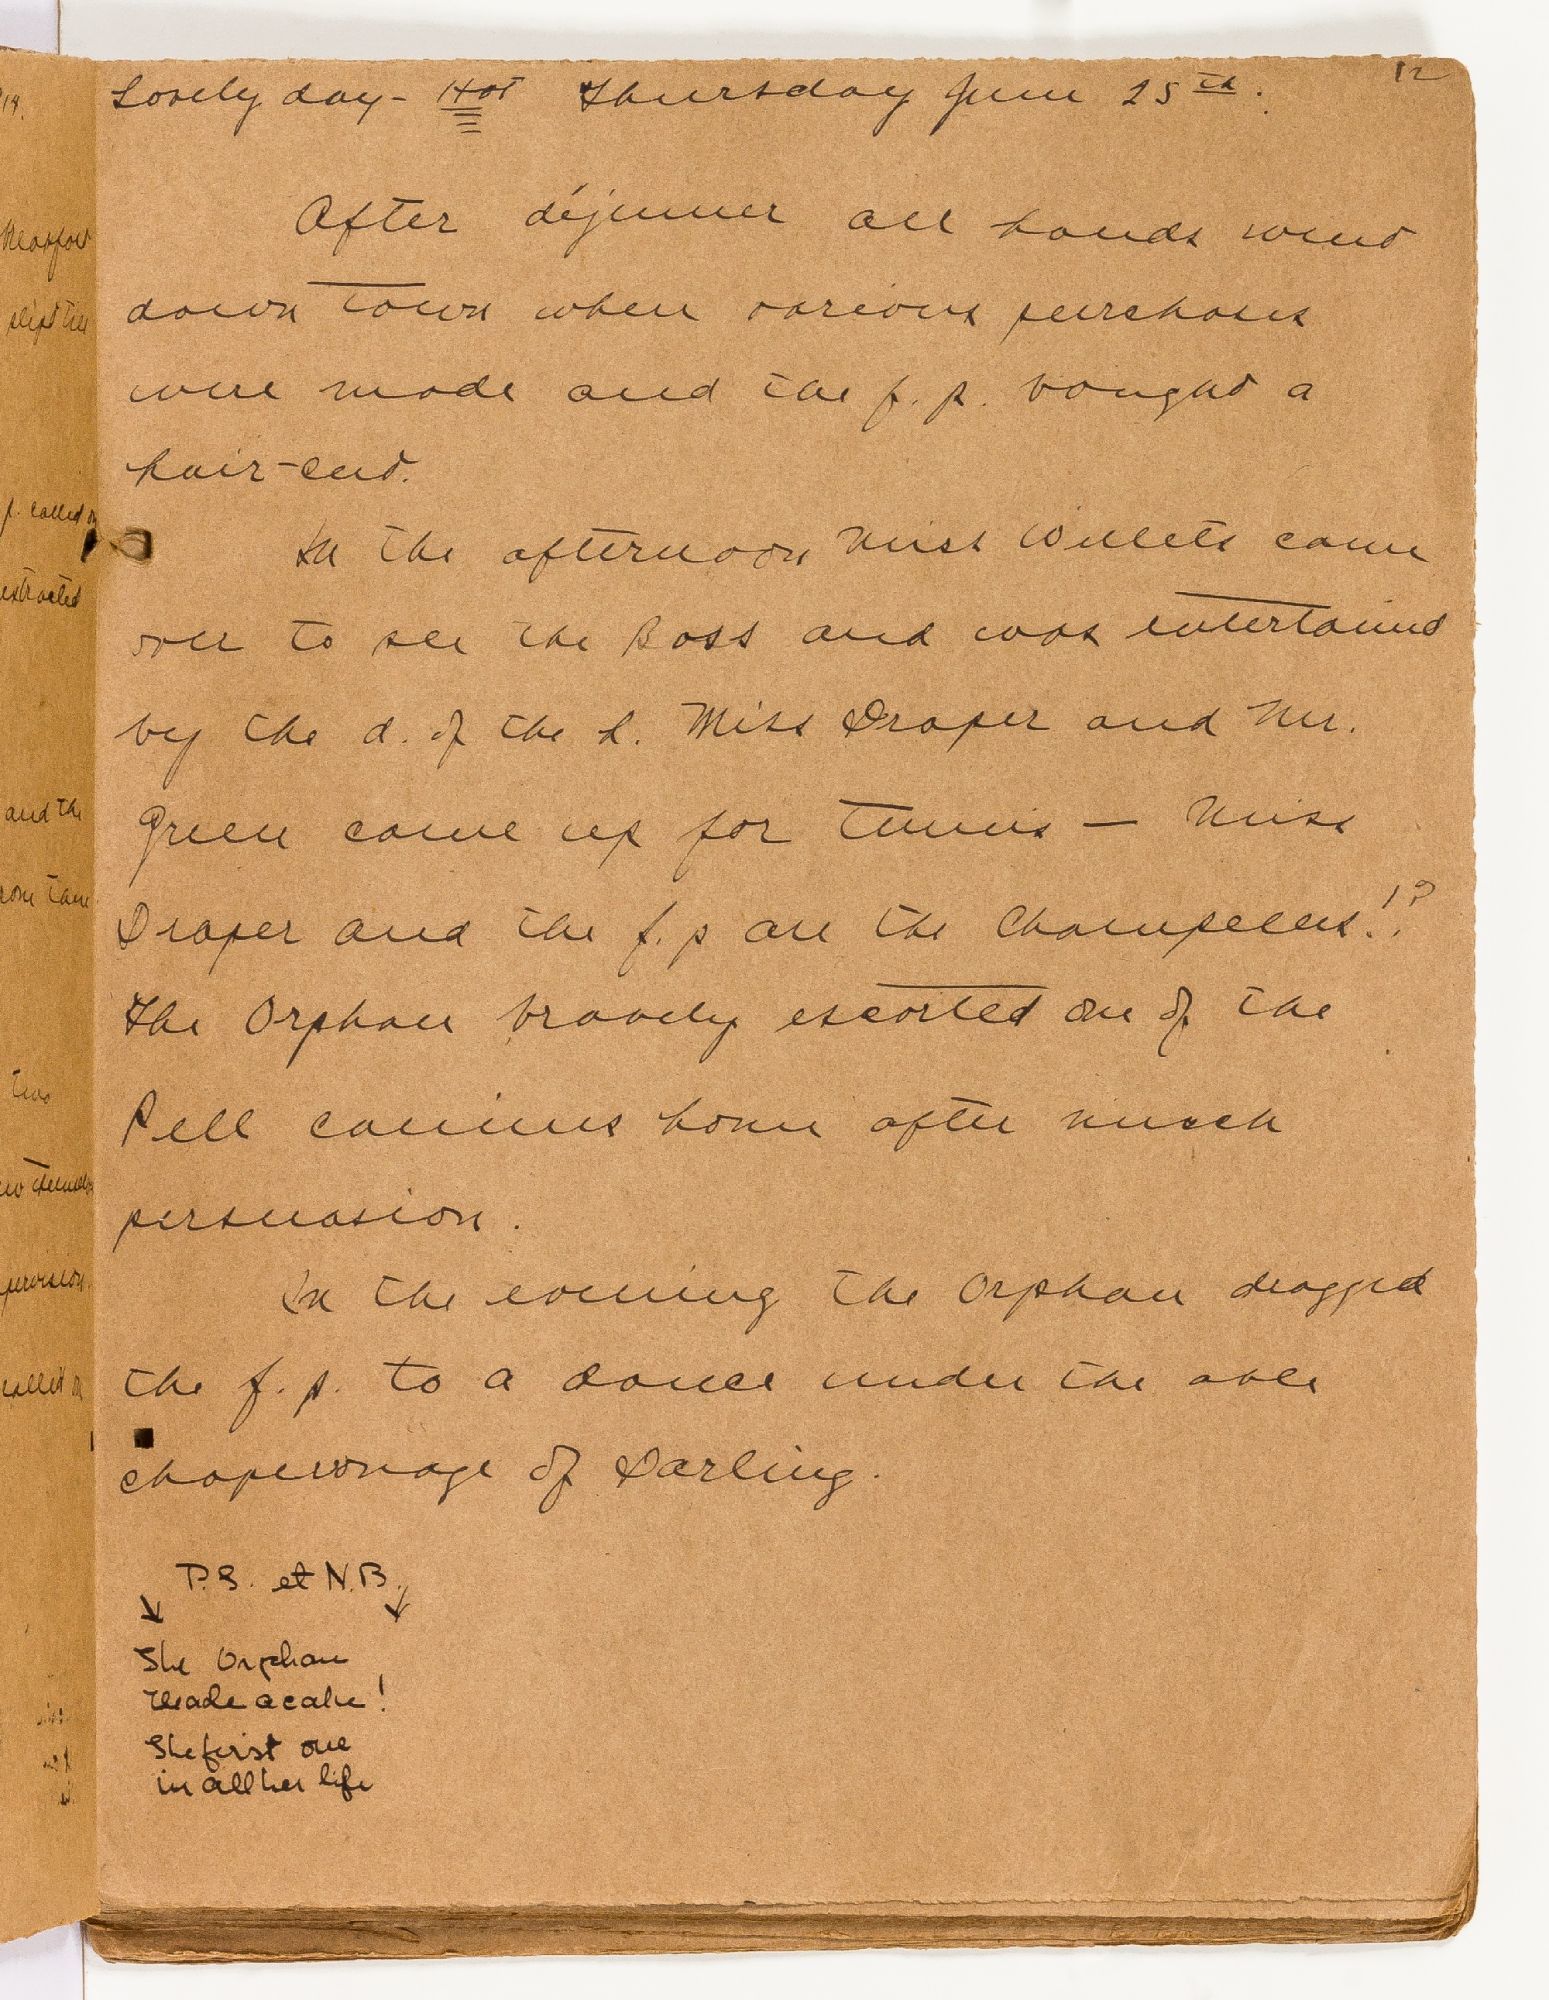 12
Lovely day - Hot Thursday June 25th.
After déjeuner all hands went
down town when various purchases
were made and the f. p. bought a
hair-cut.
In the afternoon Miss Willets came
over to see the Boss and was entertained
by the d. of the h. Miss Draper and Mr.
Green came up for tennis — Miss
Draper and the f. p are the Champeens!!?
The Orphan bravely escorted one of the
Pell canines home after much
persuasion.
In the evening the Orphan dragged
the f. p. to a dance under the able
chaperonage of Darling.
P.S. et N.B.
The Orphan
made a cake!
The first one
in all her life
called on
and the
two
called on